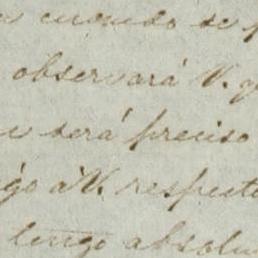 cuando se
observará V. q
será preciso
go á V. respecto
tengo absolu